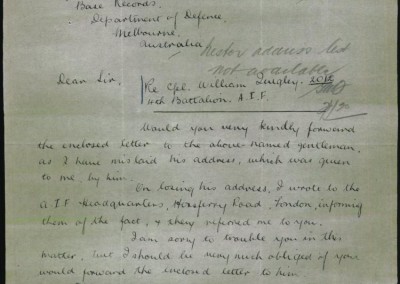 Base Records.
Department of Defence,
Melbourne,
Australia
not available
Dear Sir,
Re Cpl. William Quigley. 2012
4th Battalion. A.I.F.
Would you very kindly forward
the enclosed letter to the above-named gentleman,
as I have mislaid his address, which was given
to me by him.
On losing his address, I wrote to the
A.I.F Headquarters, Horseferry Road, London, informing
them of the fact, & they referred me to you.
I am sorry to trouble you in this
matter, but I should be very much obliged if you
would forward the enclosed letter to him.